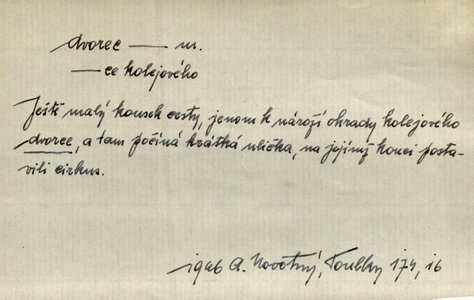 dvorec — m.
— ce kolejového
Ještě malý kousek cesty, jenom k nároží ohrady kolejového
dvorce, a tam počíná krátká ulička, na jejímž konci posta-
vili cirkus.
1946 A. Novotný, Toulky 174, 16